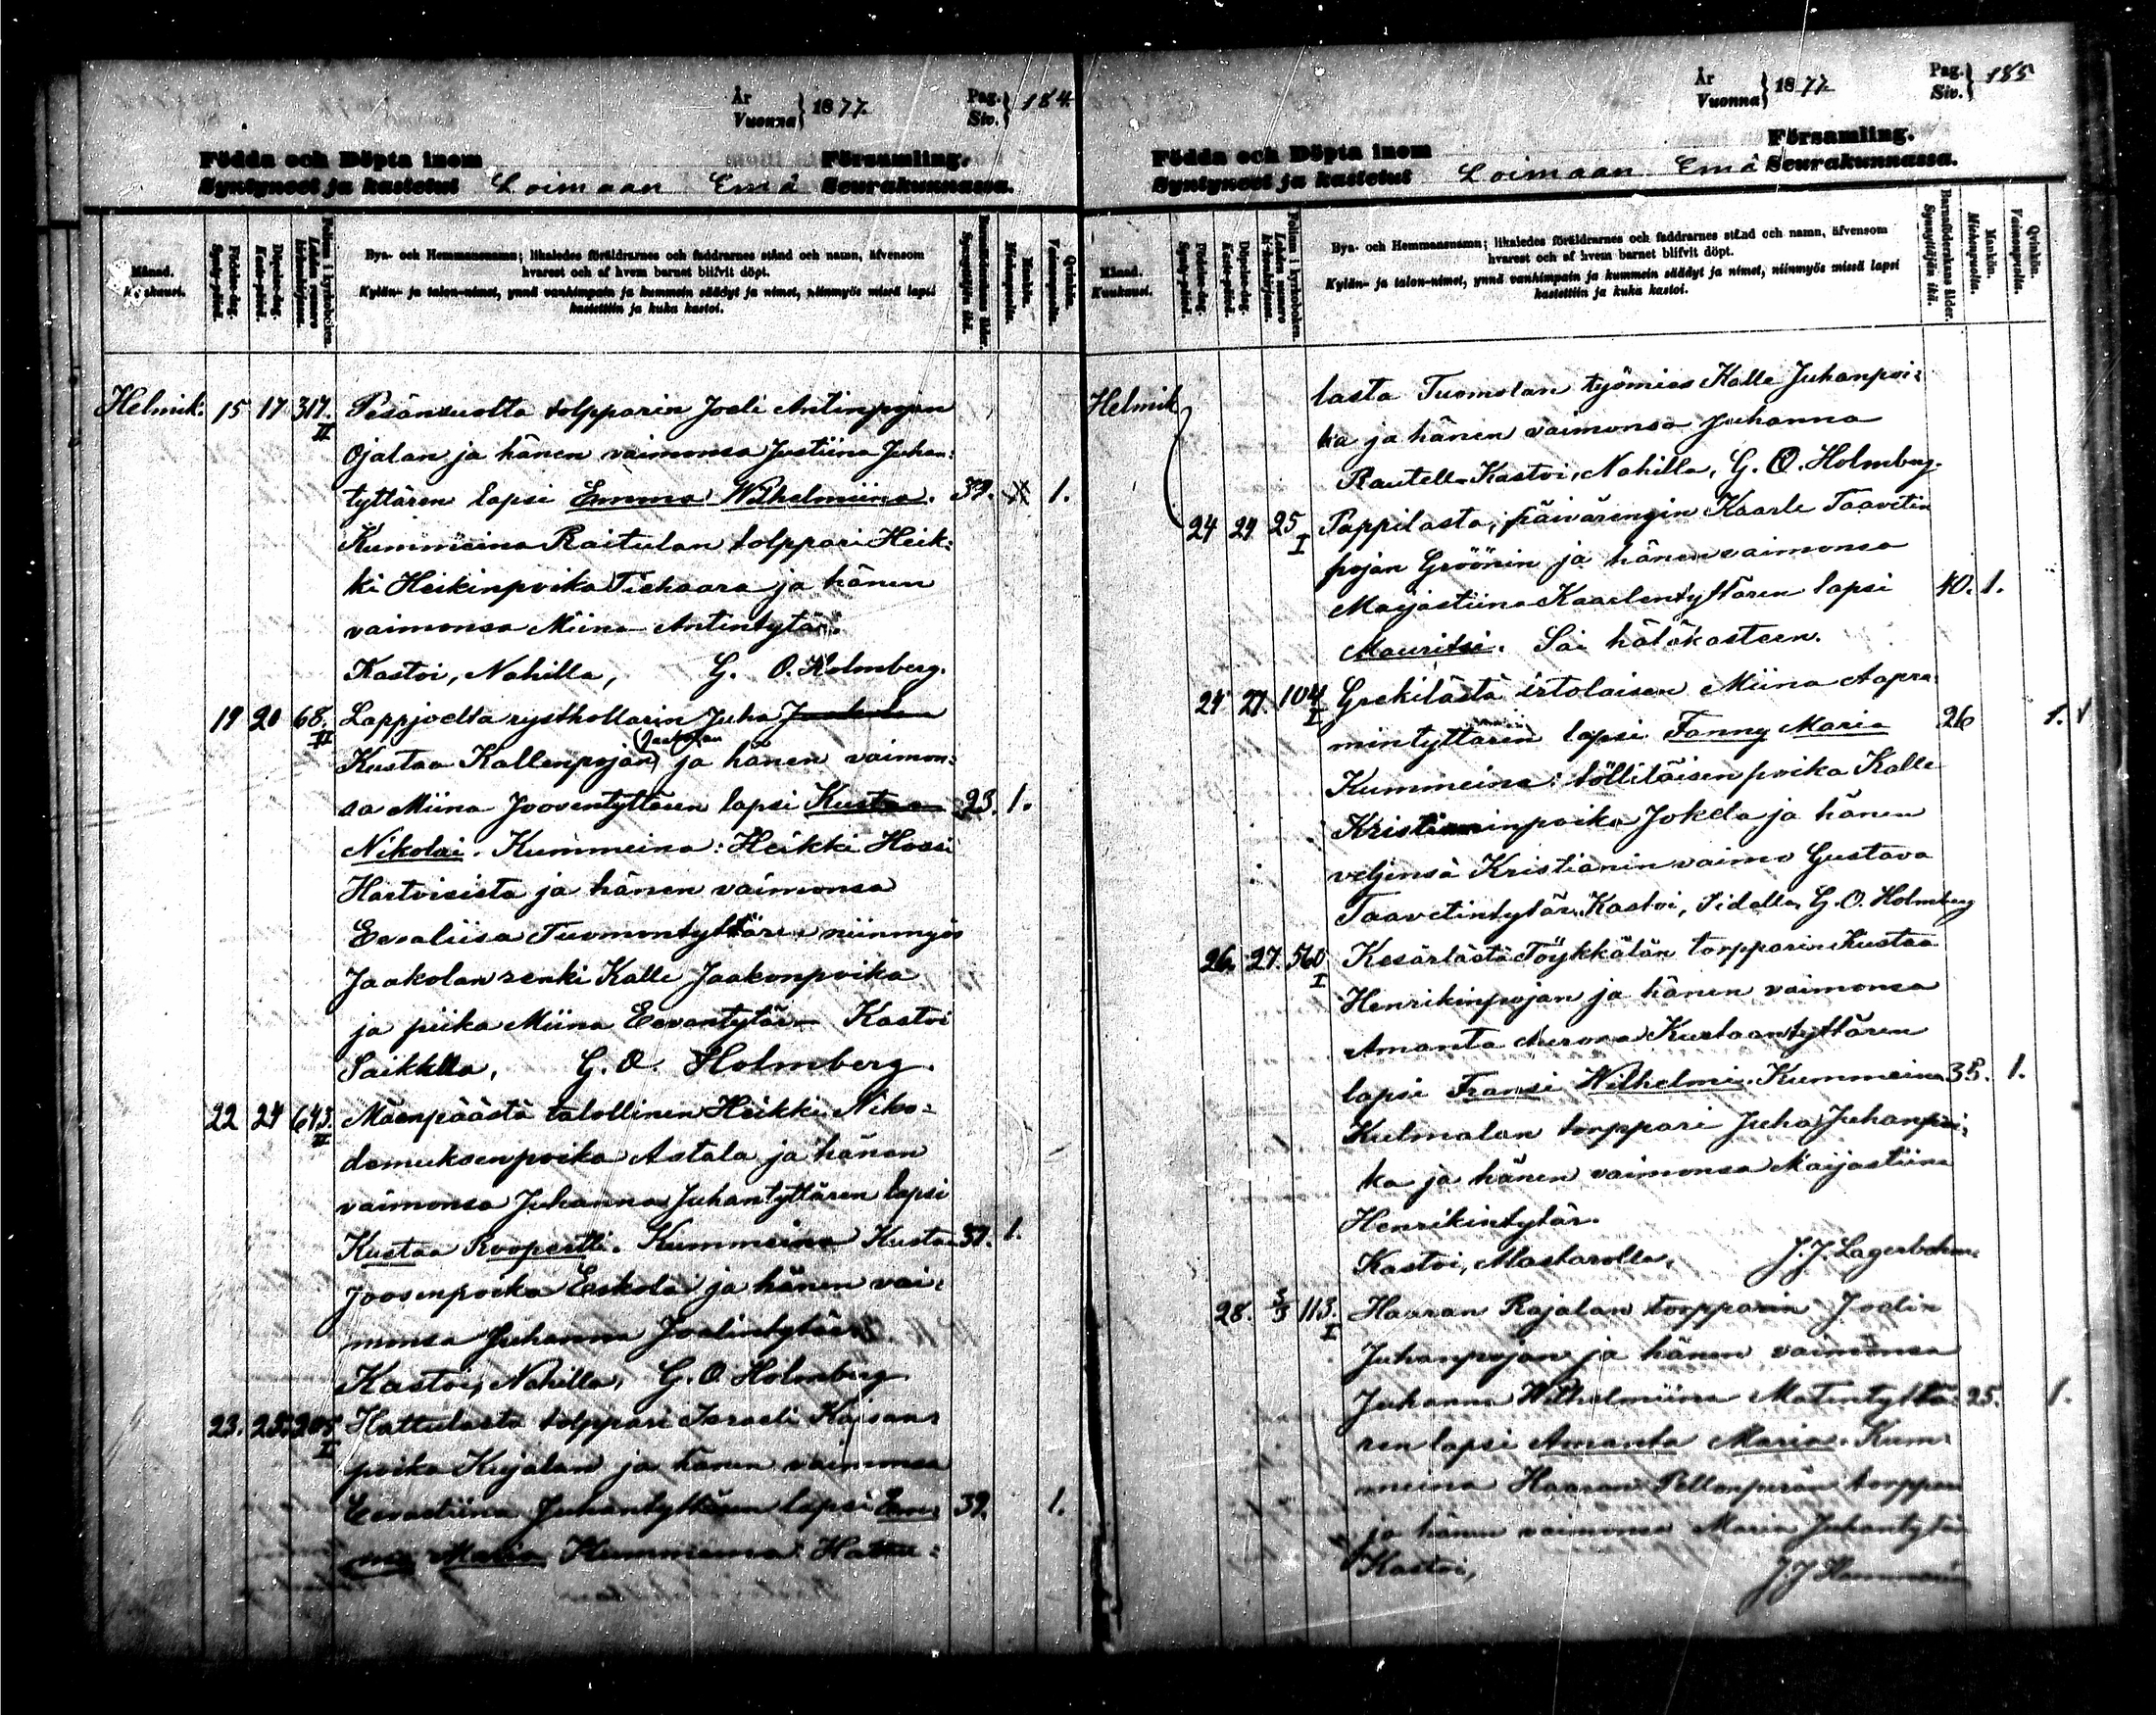 År
Vuonna } 1877.
Pag.
Siv. } 184
Födda och Döpta inom
Församling.
Syntyneet ja kastetut Loimaan Emä Seurakunnassa.
Månad.
Kuukausi.
Födelse-dag.
Synty-päivä.
Döpelse-dag.
Kaste-päivä.
Folium i kyrkoboken.
Lehden numero kirkonkirjassa.
Bya- och Hemmansnamn; likaledes föräldrarnes och faddrarnes stånd och namn, äfvensom
hvarest och af hvem barnet blifvit döpt.
Kylän- ja talon-nimet, ynnä vanhimpain ja kummein säädyt ja nimet, niinmyös missä lapsi
kastettiin ja kuka kastoi.
Barnaföderskans ålder.
Synnyttäjän ikä.
Mankön.
Miehenpuolia.
Qvinkön.
Vaimonpuolia.
Helmik. 15 17 317. II Pesänsuolta tolpparin Joeli Antinpojan
Ojalan ja hänen vaimonsa Justiina Juhan:
tyttären lapsi Emma Wilhelmiina. 39. 1.
Kummeina Raitulan tolppari Heik:
ki Heikinpoika Tiehaara ja hänen
vaimonsa Miina Antintytär.
Kastoi, Nahilla, G. O. Holmberg.
19 20 68. II Lappjoelta rysthollarin Juha Jaakolan
Kustaa Kallenpojan (Jaakolan) ja hänen vaimon:
sa Miina Jooventyttären lapsi Kustaa 23. 1.
Nikolai. Kummeina: Heikki Hossi
Hartoisista ja hänen vaimonsa
Eevaliisa Tuomontyttären niinmyös
Jaakolan renki Kalle Jaakonpoika
ja piika Miina Eevantytär Kastoi
Saikkella, G. O. Holmberg.
22 24 643. II Mäenpäästä talollinen Heikki Niko-
demuksenpoika Astala ja hänen
vaimonsa Juhanna Juhantyttären lapsi
Kustaa Roopertti. Kummeina Kusta 37. 1.
Joosenpoika Eskola ja hänen vai:
monsa Juhanna Joelintytär.
Kastoi, Nahilla, G. O. Holmberg
23. 25. I Hattulasta tolppari Israeli Kaisan:
poika Kujalan ja hänen vaimonsa
Eevastiina Juhantyttären lapsi Em: 39. 1.
ma Maria Kummeina: Hattu:
År
Vuonna } 1877
Pag.
Siv. } 185
Födda och Döpta inom
Församling.
Syntyneet ja kastetut Loimaan Emä Seurakunnassa.
Månad.
Kuukausi.
Födelse-dag.
Synty-päivä.
Döpelse-dag.
Kaste-päivä.
Folium i kyrkoboken.
Lehden numero kirkonkirjassa.
Bya- och Hemmansnamn; likaledes föräldrarnes och faddrarnes stånd och namn, äfvensom
hvarest och af hvem barnet blifvit döpt.
Kylän- ja talon-nimet, ynnä vanhimpain ja kummein säädyt ja nimet, niinmyös missä lapsi
kastettiin ja kuka kastoi.
Barnaföderskans ålder.
Synnyttäjän ikä.
Mankön.
Miehenpuolia.
Qvinkön.
Vaimonpuolia.
Helmik. lasta Tuomolan työmies Kalle Juhanpoi:
ka ja hänen vaimonsa Juhanna
Rautell. Kastoi, Nahilla, G. O. Holmberg.
24 24 25 I Pappilasta, päivärengin Kaarle Taavetin
pojan Gröönin ja hänen vaimonsa
Marjastiina Kaarlentyttären lapsi 40. 1.
Mauritsi. Sai hätäkasteen.
24 27. 104 I Grekilästä irtolaisen Miina Aapra:
mintyttären lapsi Fanny Maria 26 1.
Kummeina: töllitäisen poika Kalle
Kristianinpoika Jokela ja hänen
veljensä Kristianin vaimo Gustava
Taavetintytär. Kastoi, G. O. Holmberg
26. 27. 560 I Kesärlästä Töykkälän torpparin Kustaa
Henrikinpojan ja hänen vaimonsa
Amanta Kustaantyttären
lapsi Fransi Wilhelmi. Kummeina 35. 1.
Kulmalan torppari Juha Juhanpoi:
ka ja hänen vaimonsa Maijastiina
Henrikintytär.
Kastoi, J. J. Lagerbohm
28. 5/3 113. I Haaran Rajalan torpparin Joelin
Juhanpojan ja hänen vaimonsa
Juhanna Wilhelmiina Matintyttä: 25. 1.
ren lapsi Amanta Maria. Kum:
meina Haaran Pellonperän torppari
ja hänen vaimonsa Maria Juhantytär
Kastoi, J. J.